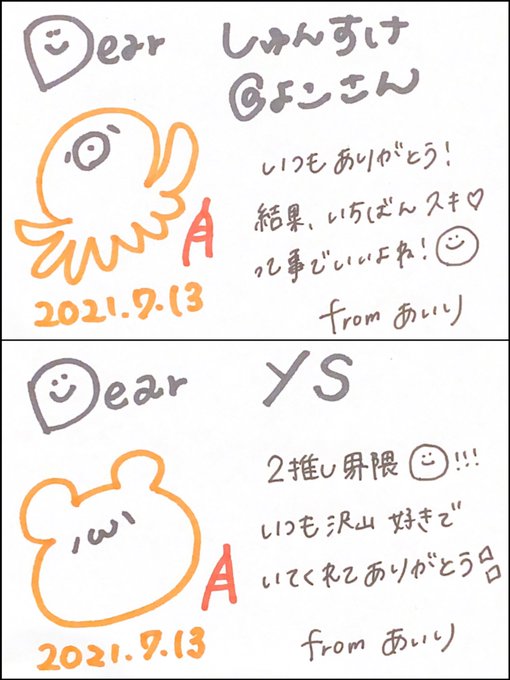 Dear しゅんすけ
@よンさん
いつもありがとう!
結果、いちばんスキ♡
って事でいいよね!
2021.7.13
from あいり
Dear YS
2推し界隈 !!!
いつも沢山好きで
いてくれてありがとう
2021.7.13
from あいり